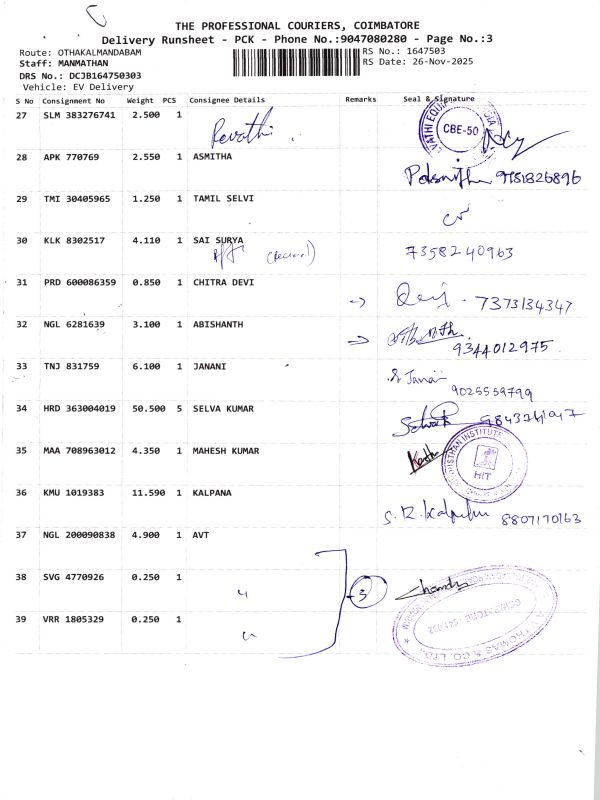 THE PROFESSIONAL COURIERS, COIMBATORE
Delivery Runsheet - PCK - Phone No.:9047080280 - Page No.:3
Route: OTHAKALMANDABAM
RS No.: 1647503
Staff: MANMATHAN
RS Date: 26-Nov-2025
DRS No.: DCJB164750303
Vehicle: EV Delivery
S No Consignment No Weight PCS Consignee Details Remarks Seal & Signature
27 SLM 383276741 2.500 1 Revathi
CBE-50
28 APK 770769 2.550 1 ASMITHA
29 TMI 30405965 1.250 1 TAMIL SELVI
30 KLK 8302517 4.110 1 SAI SURYA
7358240963
31 PRD 600086359 0.850 1 CHITRA DEVI
7373134347
32 NGL 6281639 3.100 1 ABISHANTH
9344012975
33 TNJ 831759 6.100 1 JANANI
9025559799
34 HRD 363004019 50.500 5 SELVA KUMAR
35 MAA 708963012 4.350 1 MAHESH KUMAR
HIT
36 KMU 1019383 11.590 1 KALPANA
8807170163
37 NGL 200090838 4.900 1 AVT
38 SVG 4770926 0.250 1
3
39 VRR 1805329 0.250 1